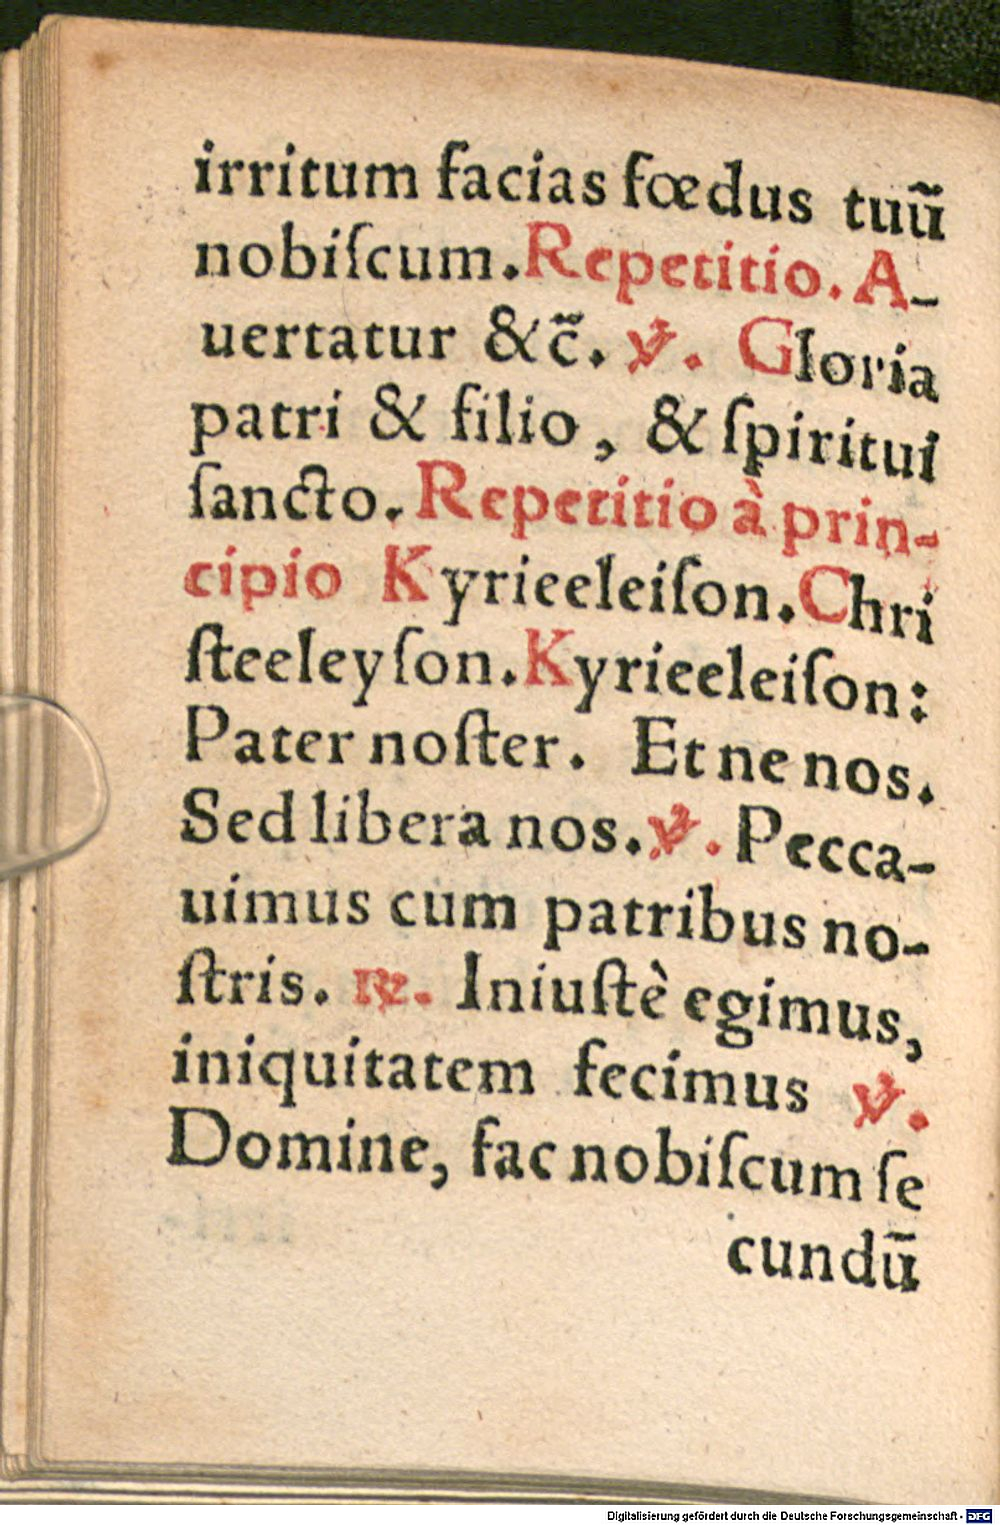 irritum facias fœdus tuũ
nobiſcum. Repetitio. A-
uertatur &c̃. ℣. Gloria
patri & filio, & ſpiritui
ſancto. Repetitio à prin-
cipio Kyrieeleiſon. Chri
ſteeleyſon. Kyrieeleiſon:
Pater noſter. Et ne nos.
Sed libera nos. ℣. Pecca-
uimus cum patribus no-
ſtris. ℟. Iniuſtè egimus,
iniquitatem fecimus ℣.
Domine, fac nobiſcum ſe
cundũ
Digitalisierung gefördert durch die Deutsche Forschungsgemeinschaft - DFG